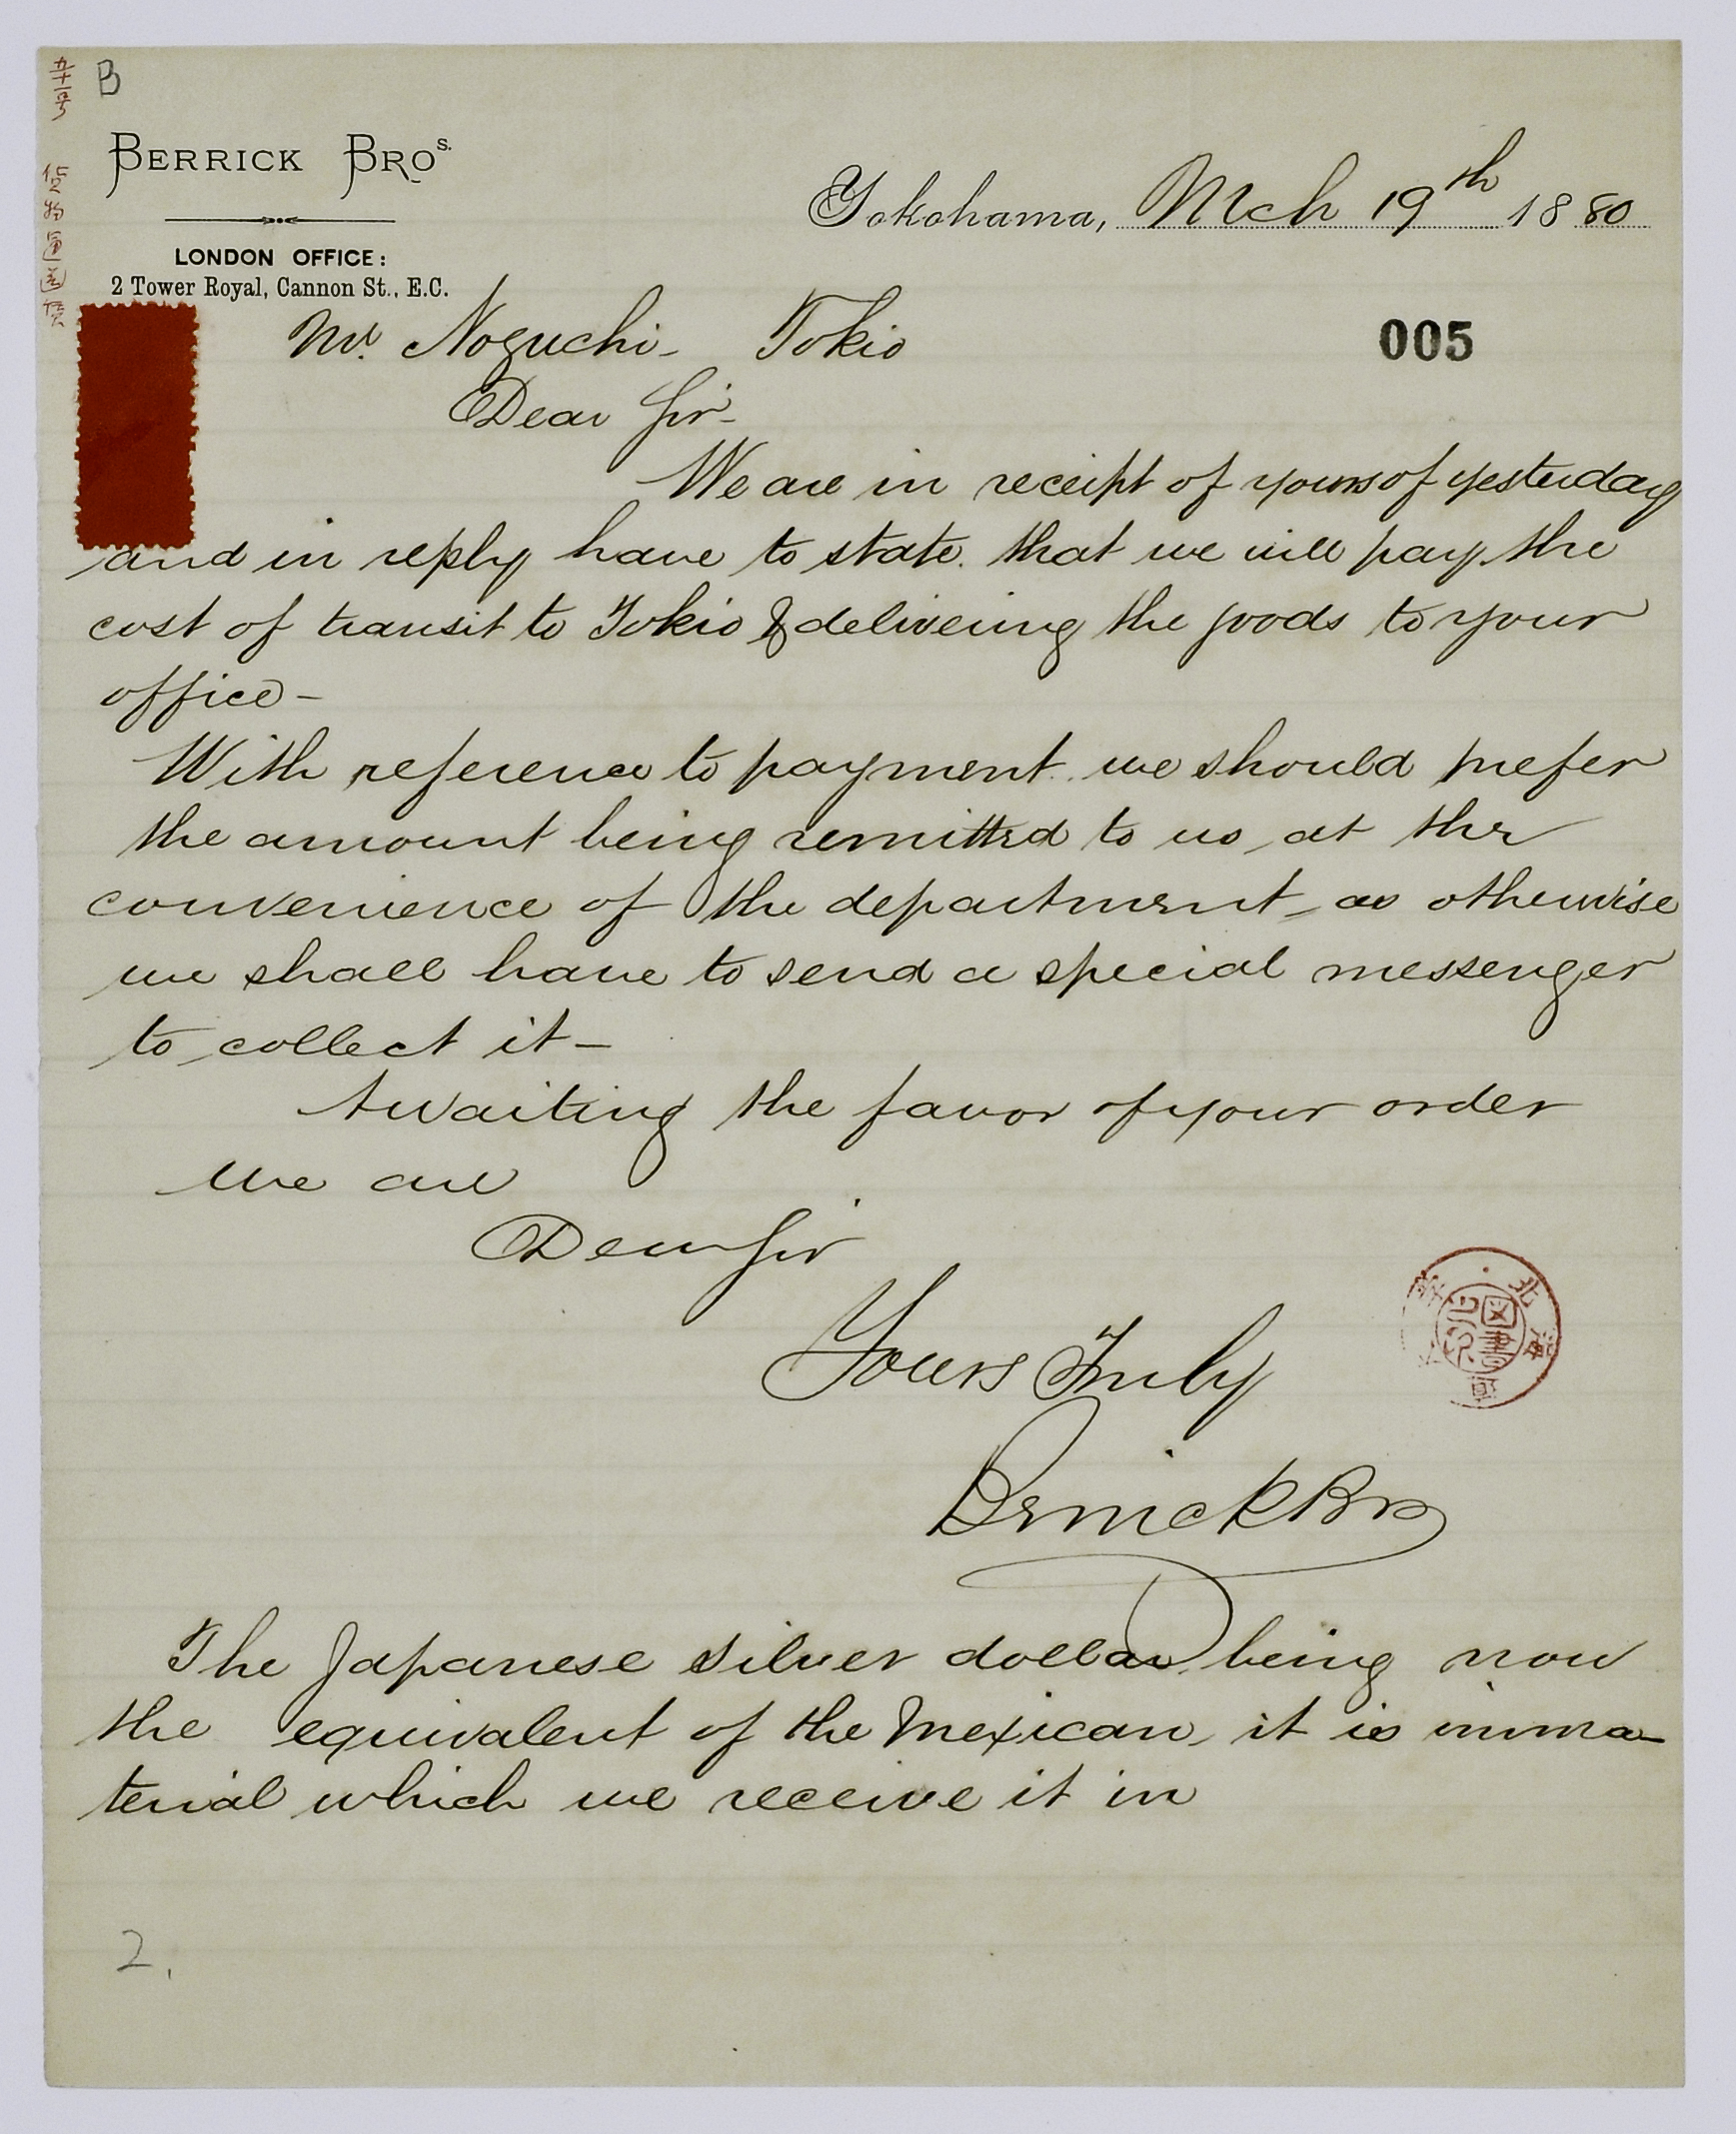 B
BERRICK BROS.
LONDON OFFICE:
2 Tower Royal, Cannon St., E.C.
Yokohama, Mch 19th 1880
005
Mr. Noguchi - Tokio
Dear Sir -
We are in receipt of yours of yesterday
and in reply have to state that we will pay the
cost of transit to Tokio & delivering the goods to your
office -
With reference to payment we should prefer
the amount being remitted to us at the
convenience of the department, as otherwise
we shall have to send a special messenger
to collect it -
Awaiting the favor of your order
we are
Dear Sir
Yours Truly
Berrick Bros
The Japanese silver dollar being now
the equivalent of the Mexican, it is imma-
terial which we receive it in
2.